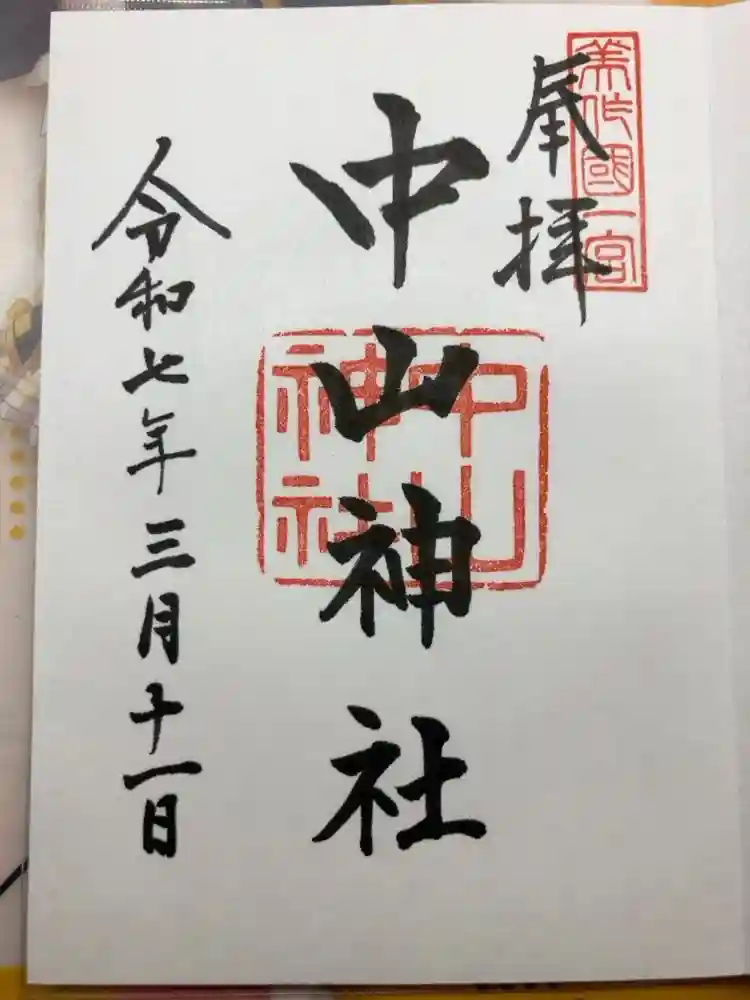 美作國一宮
奉拝
中山神社
中山神社
令和七年三月十一日